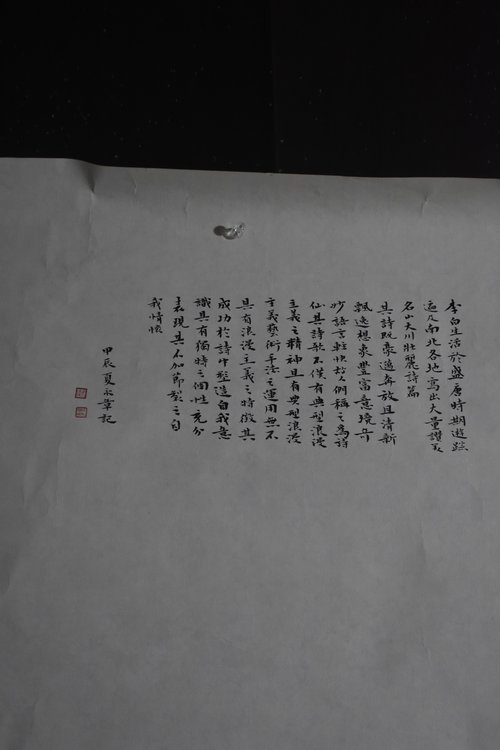 李白生活於盛唐時期遊踪
遍及南北各地寫出大量讚美
名山大川壯麗詩篇
其詩既豪邁奔放且清新
飄逸想象豐富意境奇
妙語言輕快故人們稱之為詩
仙其詩歌不僅有典型浪漫
主義之精神且有典型浪漫
主義藝術手法之運用無不
具有浪漫主義之特徵其
成功於詩中塑造自我意
識具有獨特之個性充分
表現其不加節製之自
我情懷
甲辰夏永章記